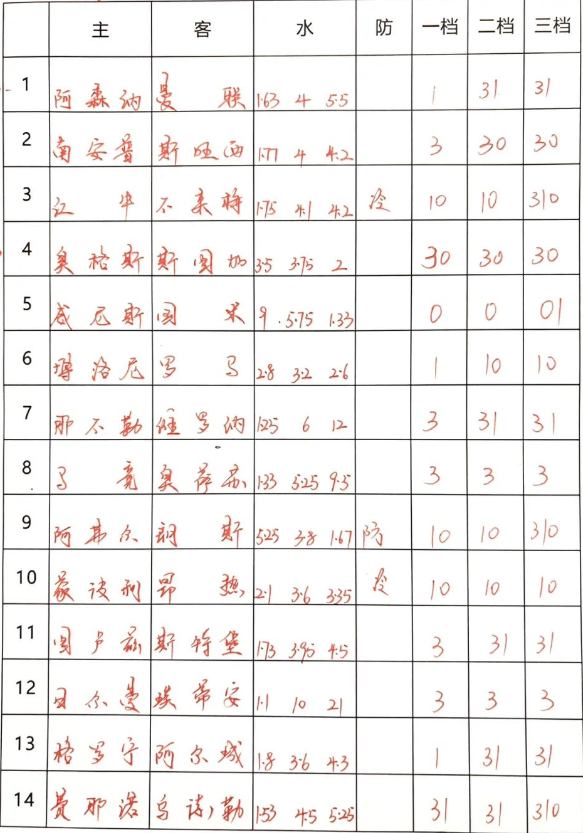 主 客 水 防 一档 二档 三档
1 阿森纳 曼联 1.63 4 5.5 1 31 31
2 南安普 斯旺西 1.77 4 4.2 3 30 30
3 红牛 不来梅 1.75 4.1 4.2 冷 10 10 310
4 奥格斯 斯图加 3.5 3.75 2 30 30 30
5 威尼斯 国米 9 5.75 1.33 0 0 01
6 博洛尼 罗马 2.8 3.2 2.6 1 10 10
7 那不勒 维罗纳 1.25 6 12 3 31 31
8 马竞 奥萨苏 1.33 5.25 9.5 3 3 3
9 阿其尔 朗斯 5.25 3.8 1.67 防 10 10 310
10 蒙彼利 昂热 2.1 3.6 3.35 冷 10 10 10
11 图卢兹 斯特堡 1.73 3.95 4.5 3 31 31
12 日尔曼 埃蒂安 1.1 10 21 3 3 3
13 格罗宁 阿尔城 1.8 3.6 4.3 1 31 31
14 费耶诺 乌德勒 1.53 4.5 5.25 31 31 310